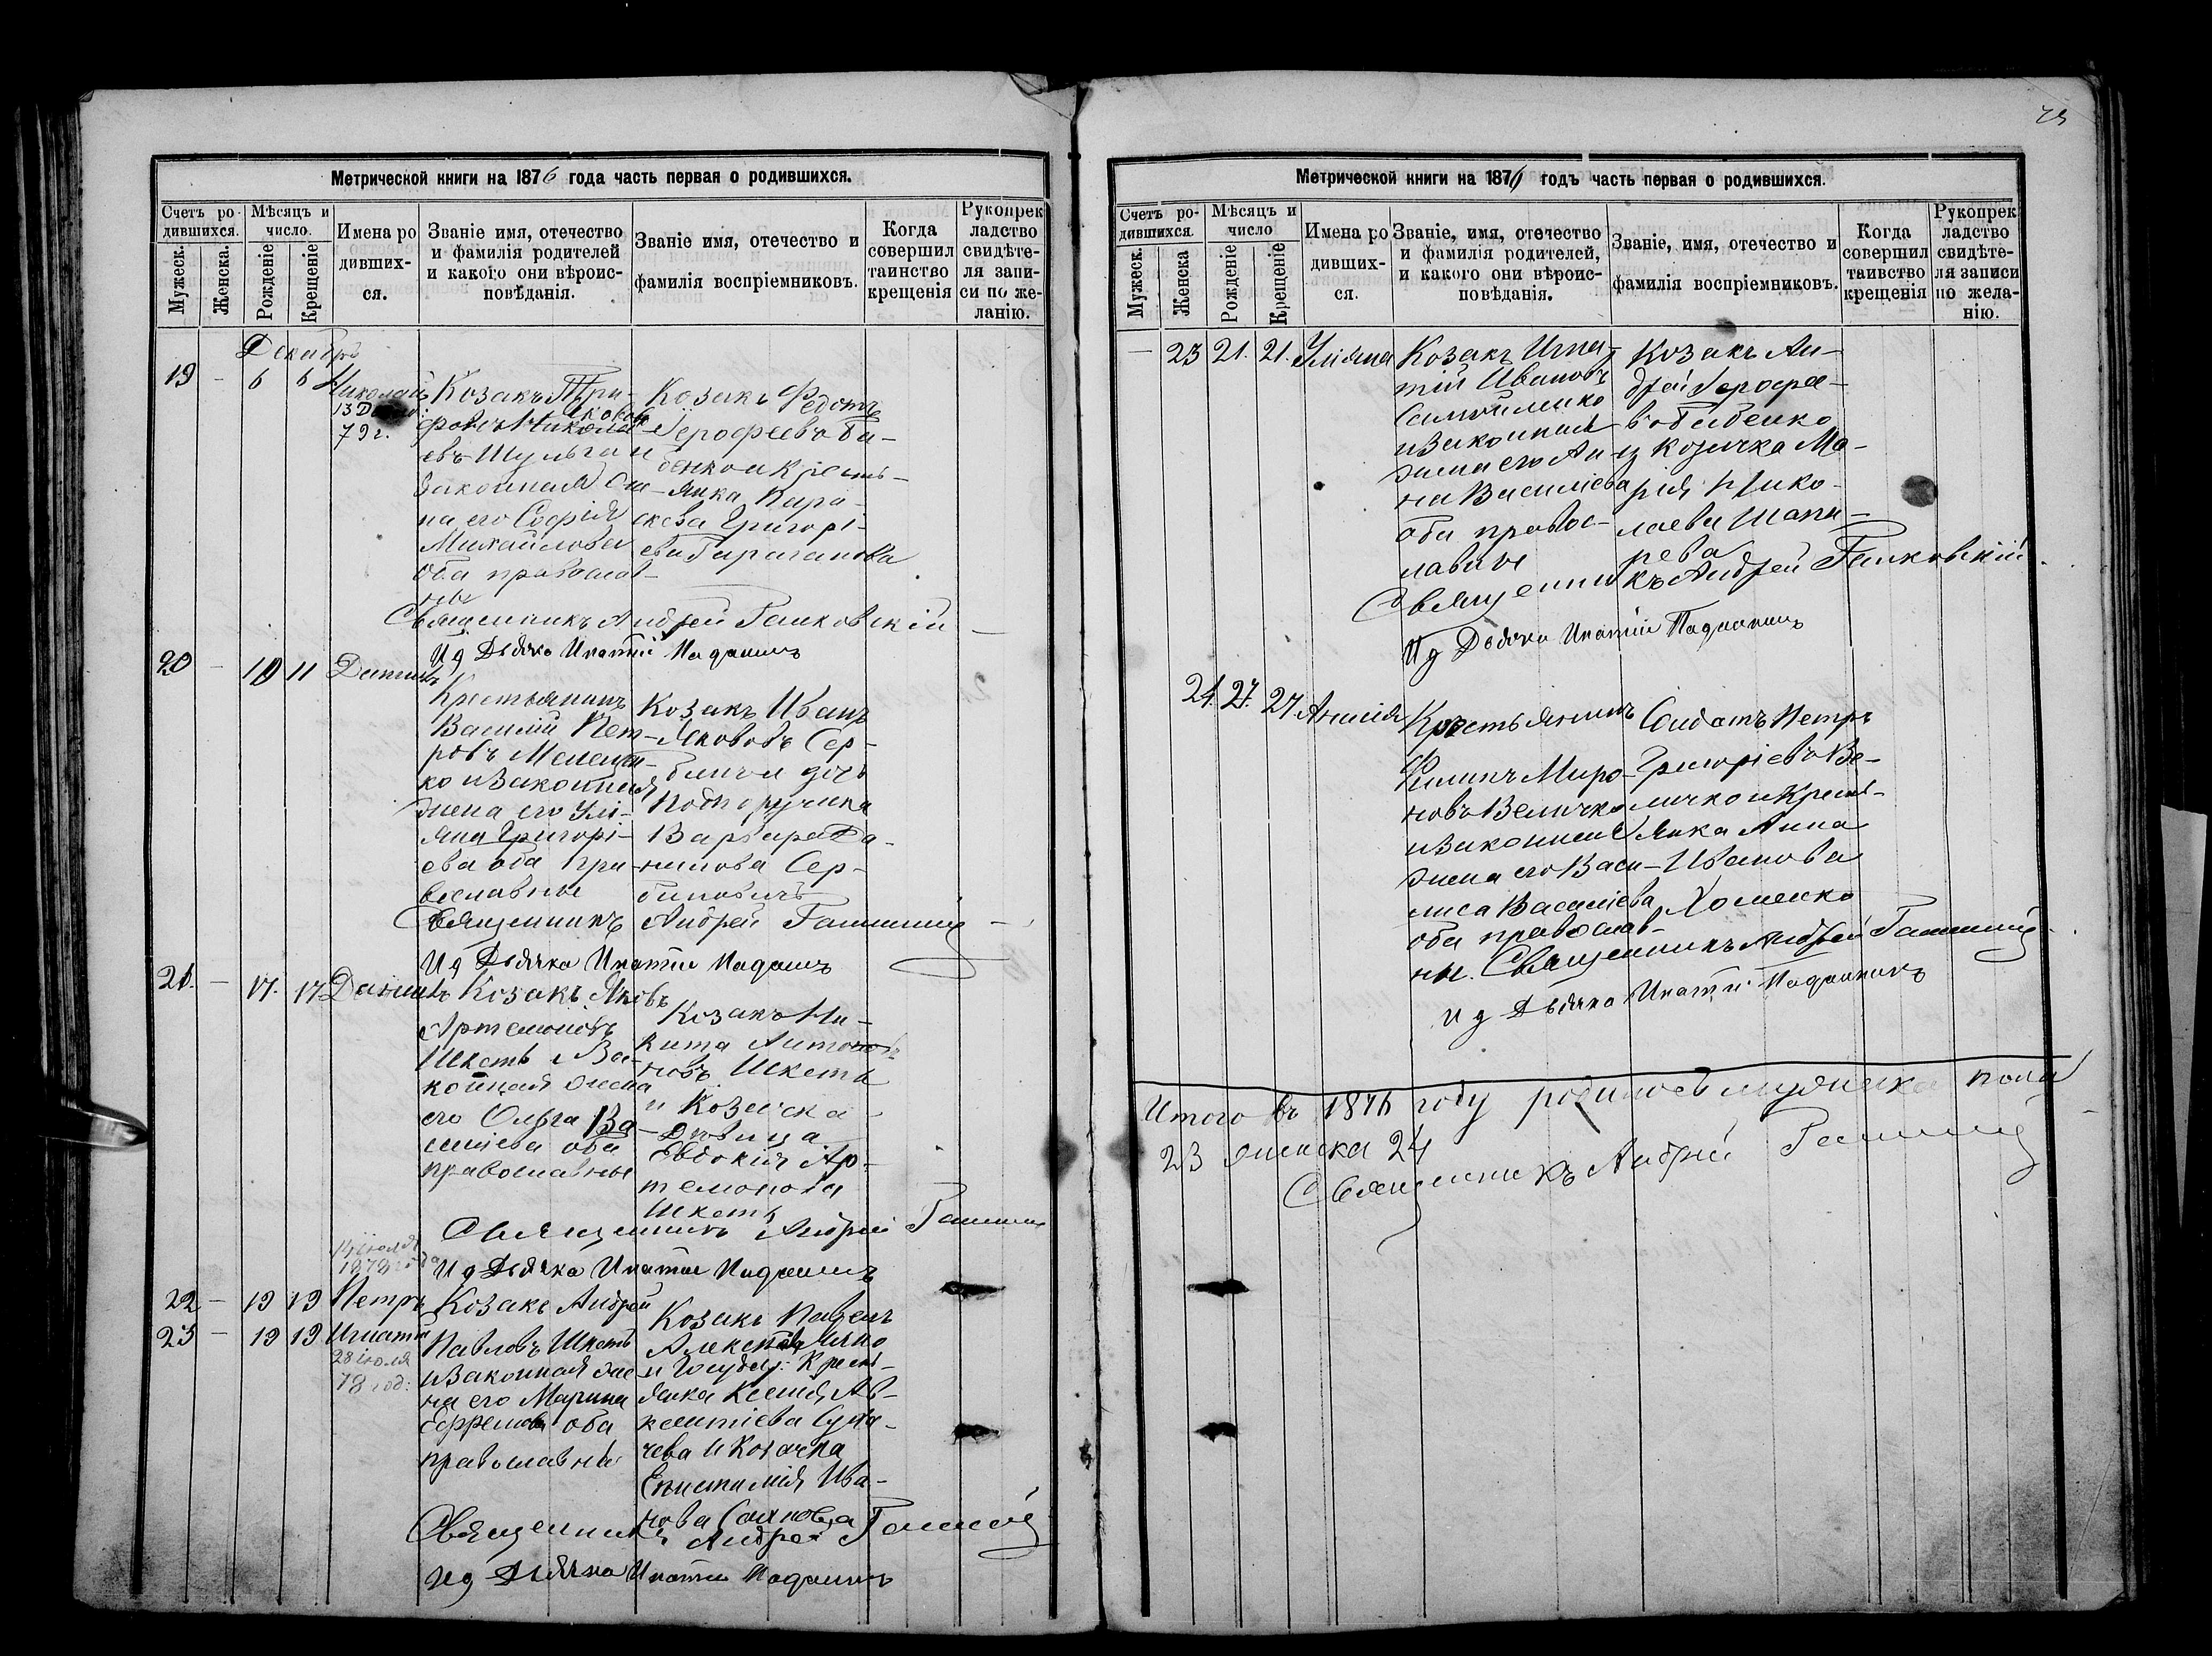 Метрической книги на 1876 года часть первая о родившихся.
Счетъ ро-
дившихся.
Мѣсяцъ и
число.
Мужеск.
Женска.
Рожденіе
Крещеніе
Имена ро
дивших-
ся.
Званіе имя, отечество
и фамилія родителей
и какого они вѣроис-
повѣданія.
Званіе имя, отечество и
фамилія воспріемниковъ.
Когда
совершил
таинство
крещенія
Рукопрек
ладство
свидѣте-
ля запи-
си по же-
ланію.
Декабрь
19 - 6 6 Николай
79 г.
Козакъ Три-
фонъ
евъ Шульга и
законная же-
на его Софія
Михайлова
оба православ-
ные
Козакъ Федотъ
Іерофеевъ Ба-
бенко и кресть-
янка Пара-
скева Григорі-
ева
Священникъ Андрей Галковскій
И д Дьячка Ипатій
20 - 10 11
Крестьянинъ
Василій Пет-
ровъ
ко и законная
жена его Улі-
яна Григорі-
ева оба пра-
вославные
Козакъ Иванъ
Якововъ Сер-
бинъ и дочь
Подпоручика
Варвара Да-
нилова Сер-
биновичъ
Священникъ Андрей
И д Дьячка Ипатій
21. - 17. 17 Даніилъ
Козакъ Яковъ
Артемоновъ
Шкеть и за-
конная жена
его Ольга Ва-
силіева оба
православные
Козакъ Ни-
кита Антоно-
новъ Шкета
и Козачка
Дѣвица
Евдокія Ар-
темонова
Шкеть
Священникъ Андрей
14 іюля
1878 года
И д Дьячка Ипатій
22 - 19 19 Петръ
23 - 19 19 Игнатій
28 іюля
78 год:
Козакъ Андрей
Павловъ Шкеть
и законная же-
на его Марина
Ефремова оба
православны
Козакъ Павелъ
и Кресть-
янка Ксенія Ав-
ксентіева
чева и Козачка
Епистимія Ива-
нова
Священникъ Андрей
И д Дьячка Ипатій
Метрической книги на 1876 годъ часть первая о родившихся.
Счетъ ро-
дившихся.
Мѣсяцъ и
число
Мужеск.
Женска
Рожденіе
Крещеніе
Имена ро
дивших-
ся.
Званіе, имя, отечество
и фамилія родителей,
и какого они вѣроис-
повѣданія.
Званіе, имя, отечество и
фамилія воспріемниковъ.
Когда
совершил
таинство
крещенія
Рукопрек
ладство
свидѣте-
ля записи
по жела-
нію.
— 23 21. 21. Уліяна
Козакъ Игна-
тій Ивановъ
Самойленко
и законная
жена его Ан-
на Василіева
оба правос-
лавные
Козакъ Ан-
дрей Ерофее-
въ Бабенко
и козачка Ма-
рія Нико-
лаева Шапа-
рева
Священникъ Андрей Галковскій
И д Дьячка Ипатій
24. 27. 27 Анисія
Крестьянинъ
Филипъ Миро-
новъ Величко
и законная
жена его Васи-
лиса Василіева
оба православ-
ны.
Солдатъ Петръ
Григоріевъ Ве-
личко и Кресть-
янка Анна
Иванова
Хоменко
Священникъ Андрей
и д Дьячка Ипатій
Итого въ 1876 году родилось мужеска пола
23 женска 24
Священникъ Андрей